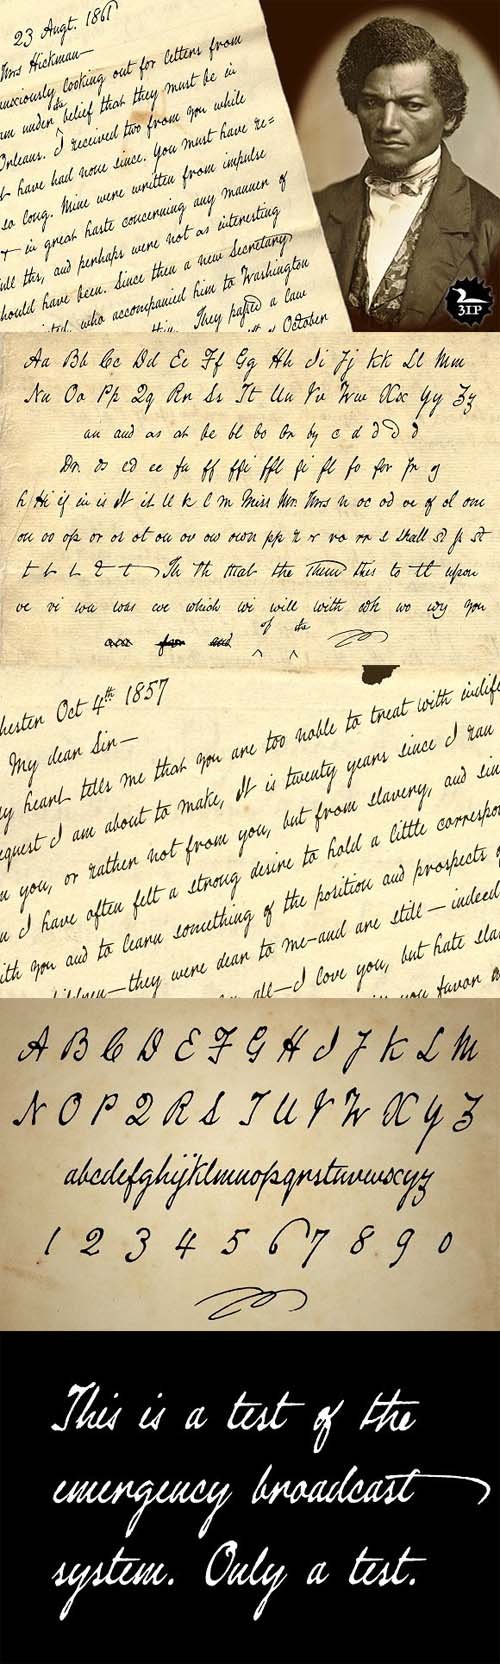 23 Augt. 1861
Mrs Hickman—
looking out for letters from
am under the belief that they must be in
Orleans. I received two from you while
I have had none since. You must have re=
so long. Mine were written from impulse
in great haste concerning any manner of
all this, and perhaps were not as interesting
should have been. Since then a new Secretary
who accompanied him to Washington
this. They passed a law
of October
31P
Aa Bb Cc Dd Ee Ff Gg Hh Ii Jj Kk Ll Mm
Nn Oo Pp Qq Rr Ss Tt Uu Vv Ww Xx Yy Zz
an and as at be bl bo br by c d d d d
Dr. ds ed ee fa ff ffi ffl fi fl fo for fr g
h Hi if in is It it ll k l m Miss Mr. Mrs n oc od oe of ol om
on oo op or os ot ou ov ow own pp r r ra rr s shall sd fs st
t t t t t Th Th that the Them this to tt upon
ve vi wa was we which wi will with wh wo wy you
of the
chester Oct 4th 1857
My dear Sir—
my heart tells me that you are too noble to treat with indif
request I am about to make, It is twenty years since I ran
you, or rather not from you, but from slavery, and sin
I have often felt a strong desire to hold a little correspon
with you and to learn something of the position and prospects of
children—they were dear to me—and are still—indeed
all—I love you, but hate sla
you favor
A B C D E F G H I J K L M
N O P Q R S T U V W X Y Z
abcdefghijklmnopqrstuvwxyz
1 2 3 4 5 6 7 8 9 0
This is a test of the
emergency broadcast
system. Only a test.